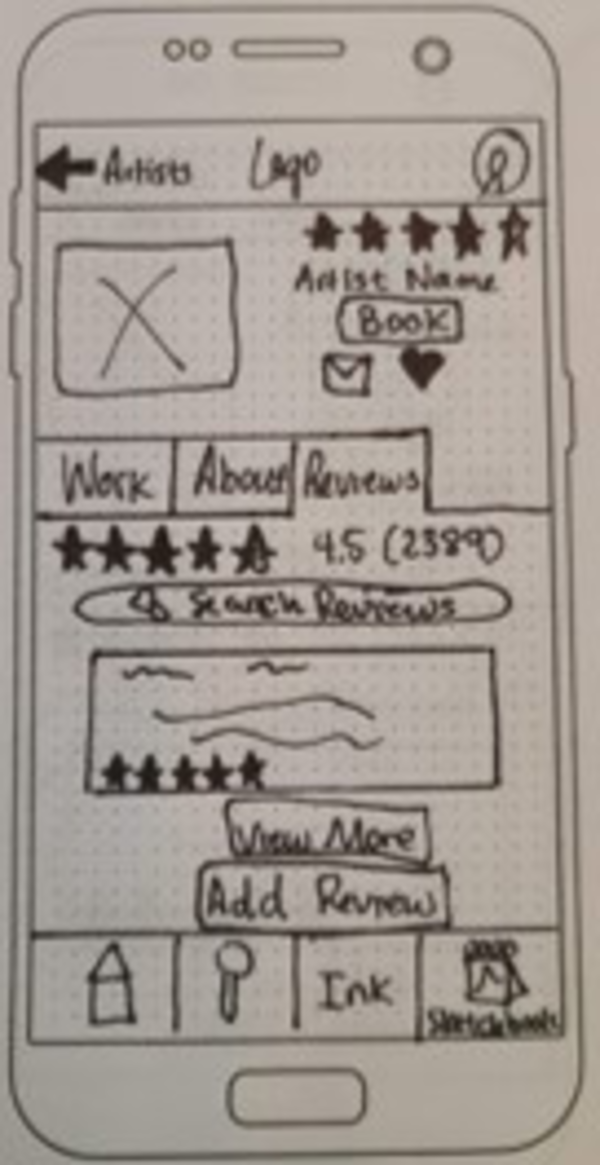 Artists Logo
Artist Name
Book
Work About Reviews
4.5 (2389)
Search Reviews
View More
Add Review
Ink
Sketchbook